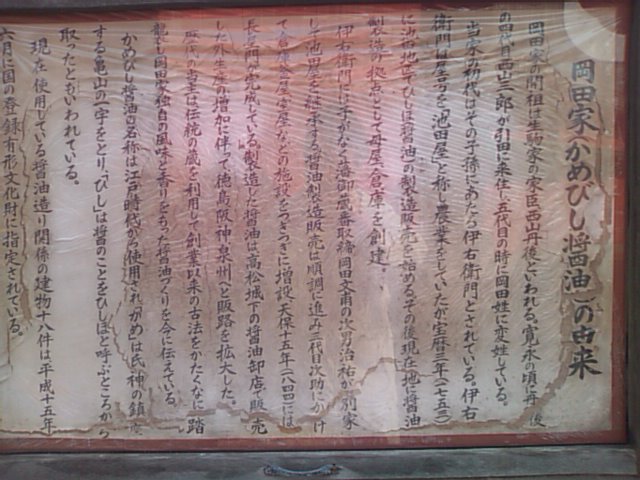 岡田家（かめびし醤油）の由来
岡田家の開祖は生駒家の家臣西山丹後といわれる。寛永の頃に丹後
の四代目西山三郎が引田に来住し、五代目の時に岡田姓に変姓している。
当家の初代はその子孫にあたる伊右衛門とされている。伊右
衛門は屋号を「池田屋」と称し農業をしていたが宝暦三年（一七五三）
に池田地区でひしほ（醤油）の製造販売を始める。その後現在地に醤油
製造の拠点として母屋、倉庫を創建。
伊右衛門には子がなく藩御蔵番取締岡田文甫の次男治祐が別家
して池田屋を継承する。醤油製造販売は順調に進み二代目次助にかけ
て倉庫釜屋室屋などの施設をつぎつぎに増設、天保十五年（一八四四）には
長屋門が完成している。製造した醤油は高松城下の醤油卸店で販売
した外生産の増加に伴って徳島阪神泉州へと販路を拡大した。
歴代の当主は伝統の蔵を利用して創業以来の古法をかたくなに踏
襲し岡田家独自の風味と香りをもった醤油づくりを今に伝えている。
かめびし醤油の名称は江戸時代から使用され「かめ」は氏神の鎮座
する亀山の一字をとり、「びし」は醤のことをひしほと呼ぶところから
取ったともいわれている。
現在使用している醤油造り関係の建物十八件は平成十五年
六月に国の登録有形文化財に指定されている。